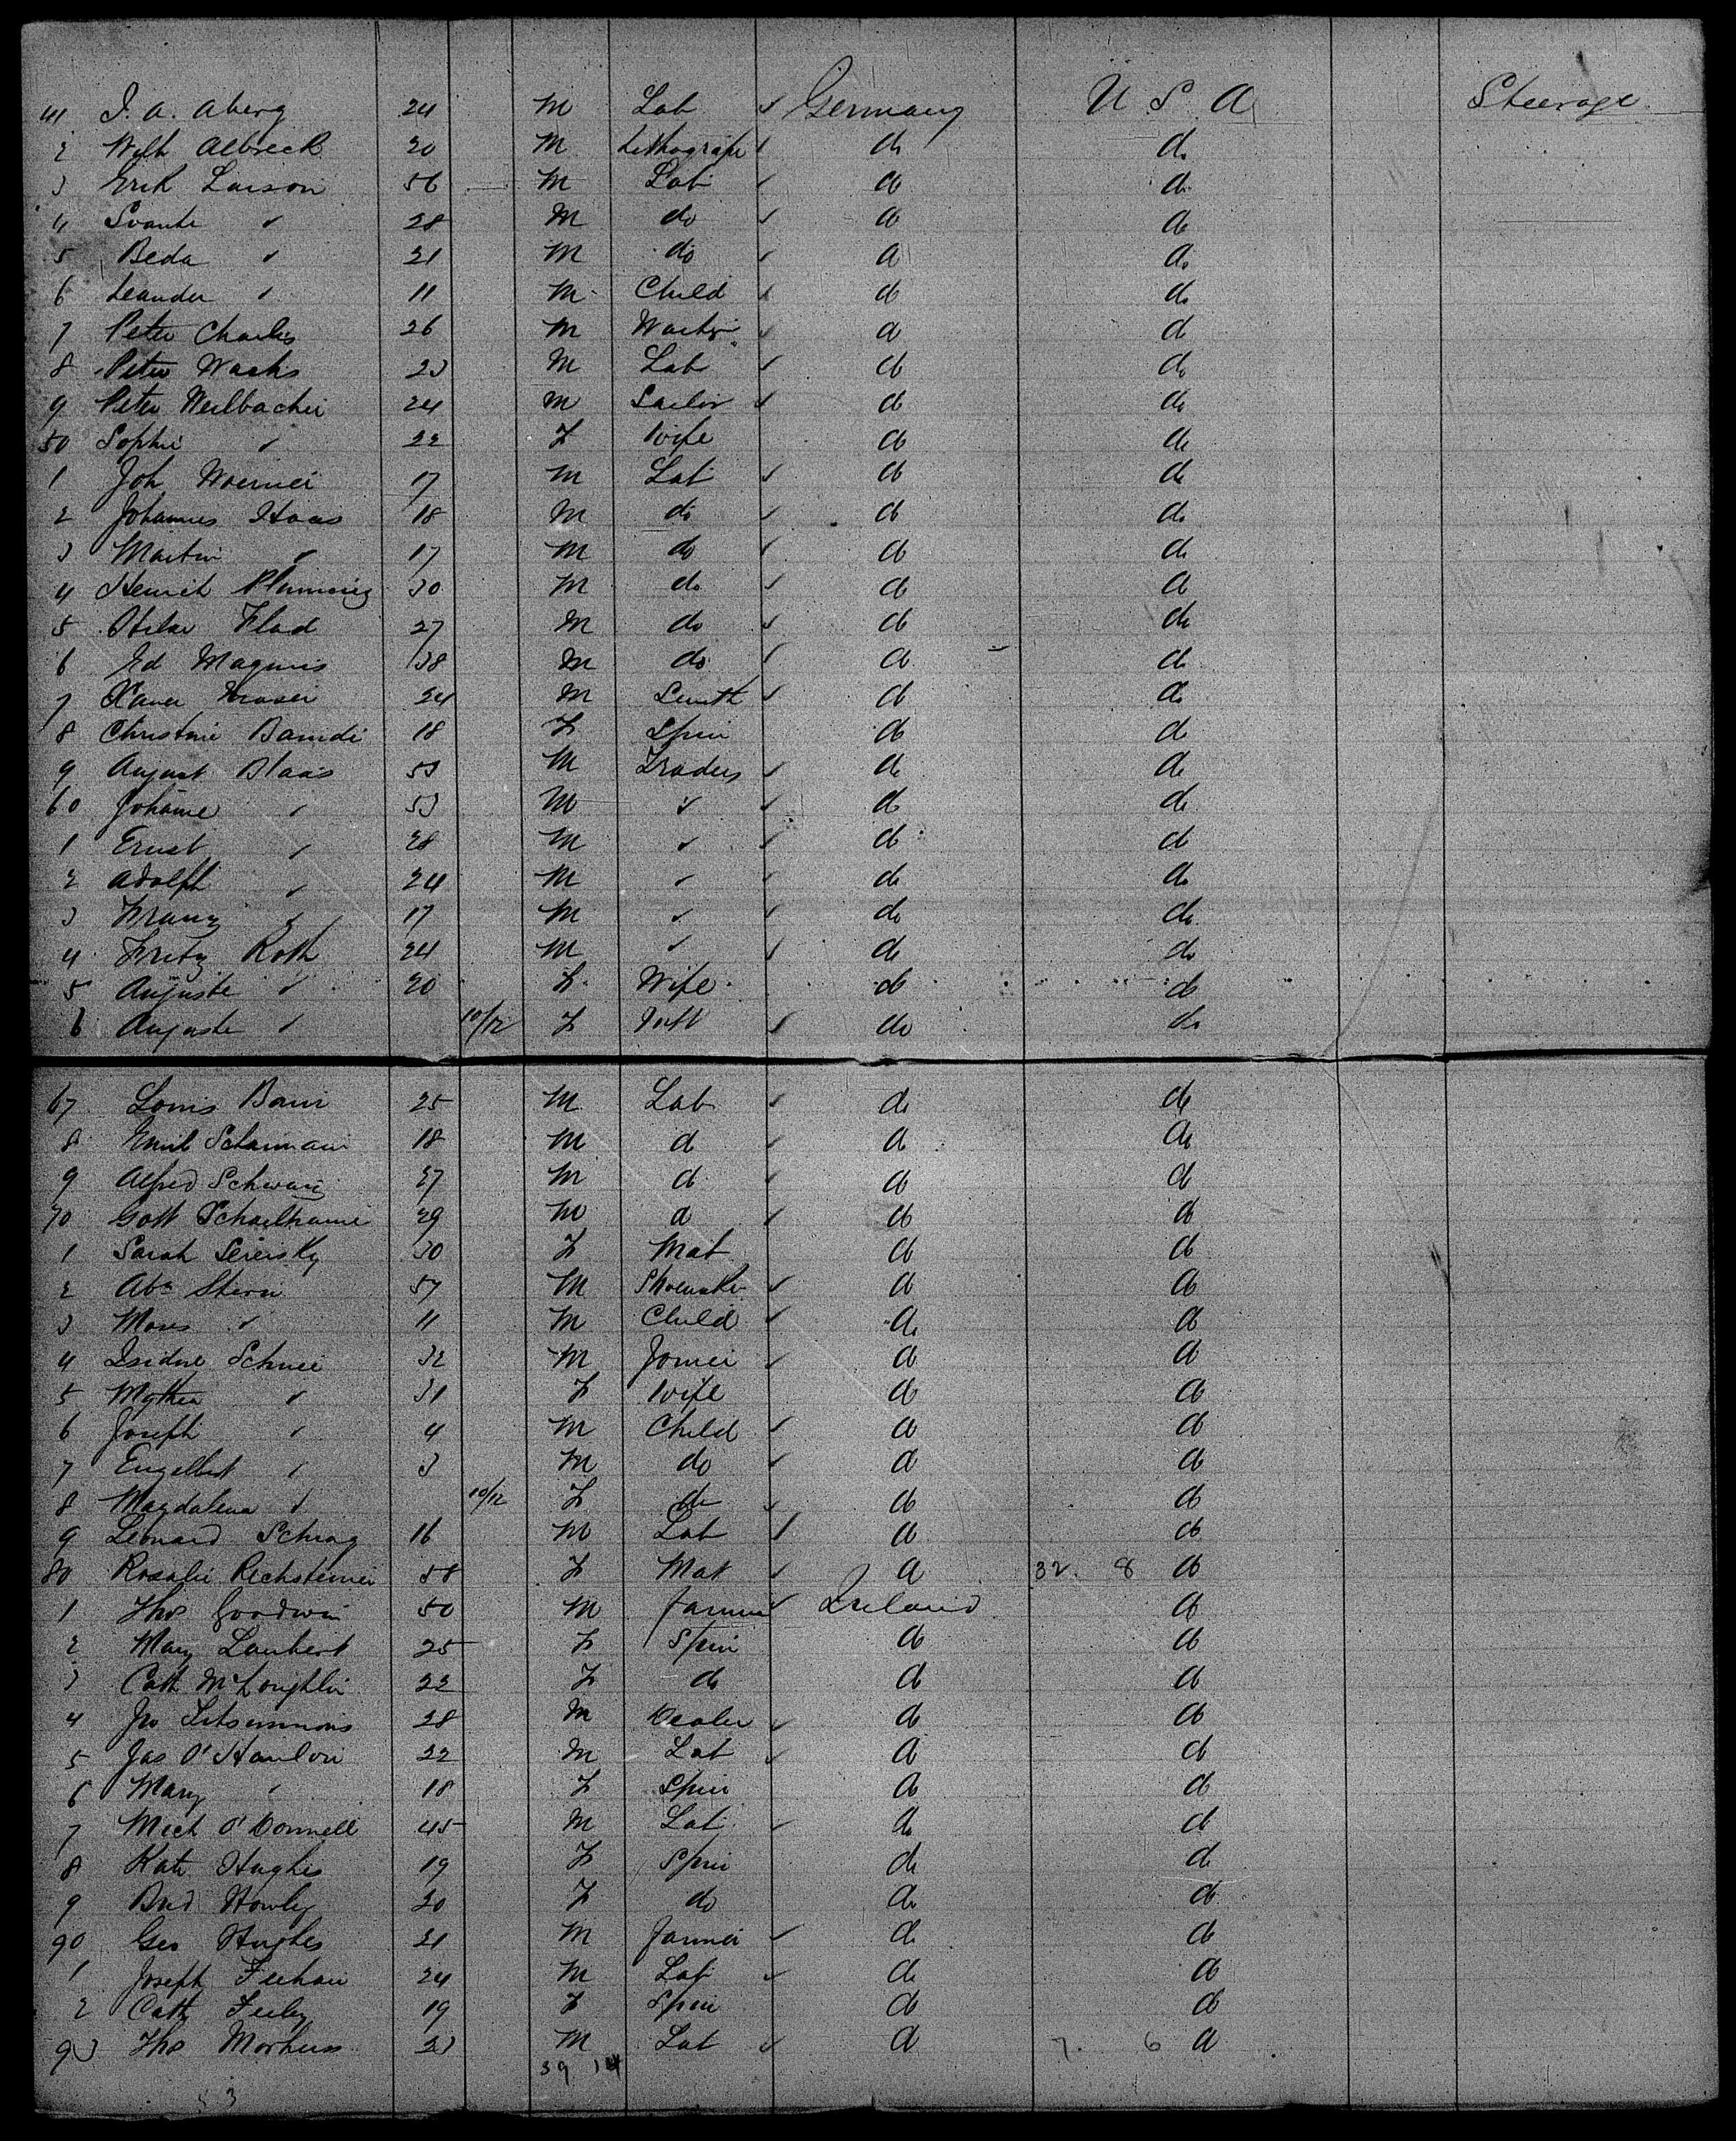 41 J. A. Aberg 24 M Lab ✓ Germany U S A Steerage
2 Wilh Albreck 20 M Lithograph ✓ do do
3 Erik Larson 56 M Lab ✓ do do
4 Svante " 28 M do ✓ do do
5 Beda " 21 M do ✓ do do
6 Leander " 11 M Child ✓ do do
7 Peter Charles 26 M ✓ do do
8 Peter Wachs 23 M Lab ✓ do do
9 Peter Weilbacher 24 M Sailor ✓ do do
50 Sophie " 22 F Wife do do
1 Joh Woerner 17 M Lab ✓ do do
2 Johannes Haas 18 M do ✓ do do
3 Martin " 17 M do ✓ do do
4 Henrich 30 M do ✓ do do
5 Flad 27 M do ✓ do do
6 Ed Magnus 38 M do ✓ do do
7 Xaver Moser 24 M Smith ✓ do do
8 Christine 18 F Spin do do
9 August Blaas 53 M Traders ✓ do do
60 Johanne " 53 M " ✓ do do
1 Ernst " 28 M " ✓ do do
2 Adolph " 24 M " ✓ do do
3 Franz " 17 M " ✓ do do
4 Fritz Roth 24 M " ✓ do do
5 Auguste " 20 F Wife do do
6 Auguste " 10/12 F Inft ✓ do do
67 Louis Baur 25 M Lab ✓ do do
8 Emil 18 M do ✓ do do
9 Alfred Schwarz 27 M do ✓ do do
70 Gott 29 M do ✓ do do
1 Sarah Sereisky 30 F Mat do do
2 Abm Stern 57 M Shoemkr ✓ do do
3 Moses " 11 M Child ✓ do do
4 Isidor Schnei 32 M Joiner ✓ do do
5 " 31 F Wife do do
6 Joseph " 4 M Child ✓ do do
7 Engelbert " 3 M do ✓ do do
8 Magdalena " 10/12 F do ✓ do do
9 Leonard Schrag 16 M Lab ✓ do do
80 Rosalie Rechsteiner 58 F Mat ✓ do 32. 8 do
1 Thos Goodwin 50 M Farmer ✓ Ireland do
2 Mary Lambert 25 F Spin do do
3 Cath McLoughlin 22 F do do do
4 Jno Fitsimmons 28 M Dealer ✓ do do
5 Jas O'Hanlon 22 M Lab ✓ do do
6 Mary " 18 F Spin do do
7 Mich O'Donnell 45 M Lab ✓ do do
8 Kate Hughes 19 F Spin do do
9 Brid Howley 20 F do do do
90 Geo Hughes 21 M Farmer ✓ do do
1 Joseph Feehan 24 M Lab ✓ do do
2 Cath Feeley 19 F Spin do do
93 Thos 23 M Lab ✓ do 7. 6 do
39 14
53